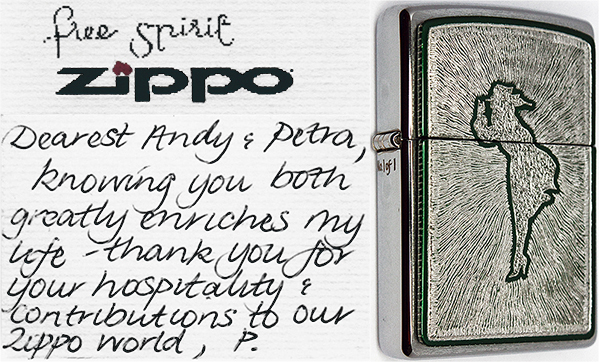 free spirit
zippo
Dearest Andy & Petra,
knowing you both
greatly enriches my
life - thank you for
your hospitality &
contributions to our
Zippo world, P.
1 of 1